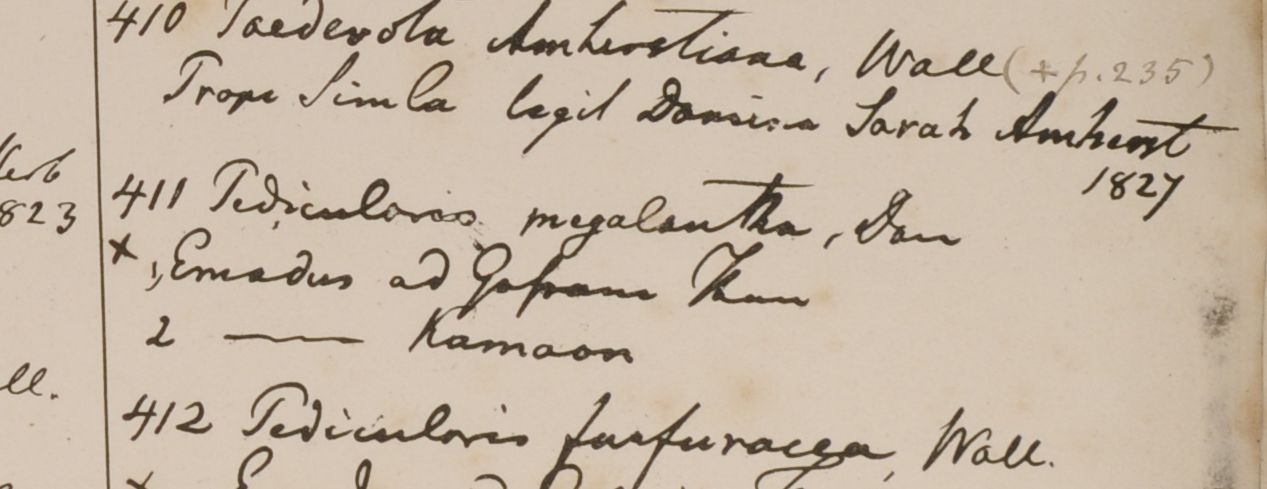 410 Paederota Amherstiana, Wall (+ p. 235)
Prope Simla legit Domina Sarah Amherst
1827
411 Pedicularis megalantha, Don
+ 1, Emodus ad Gosain Than
2 —— Kamaon
412 Pedicularis furfuracea, Wall.
Herb
823
ll.